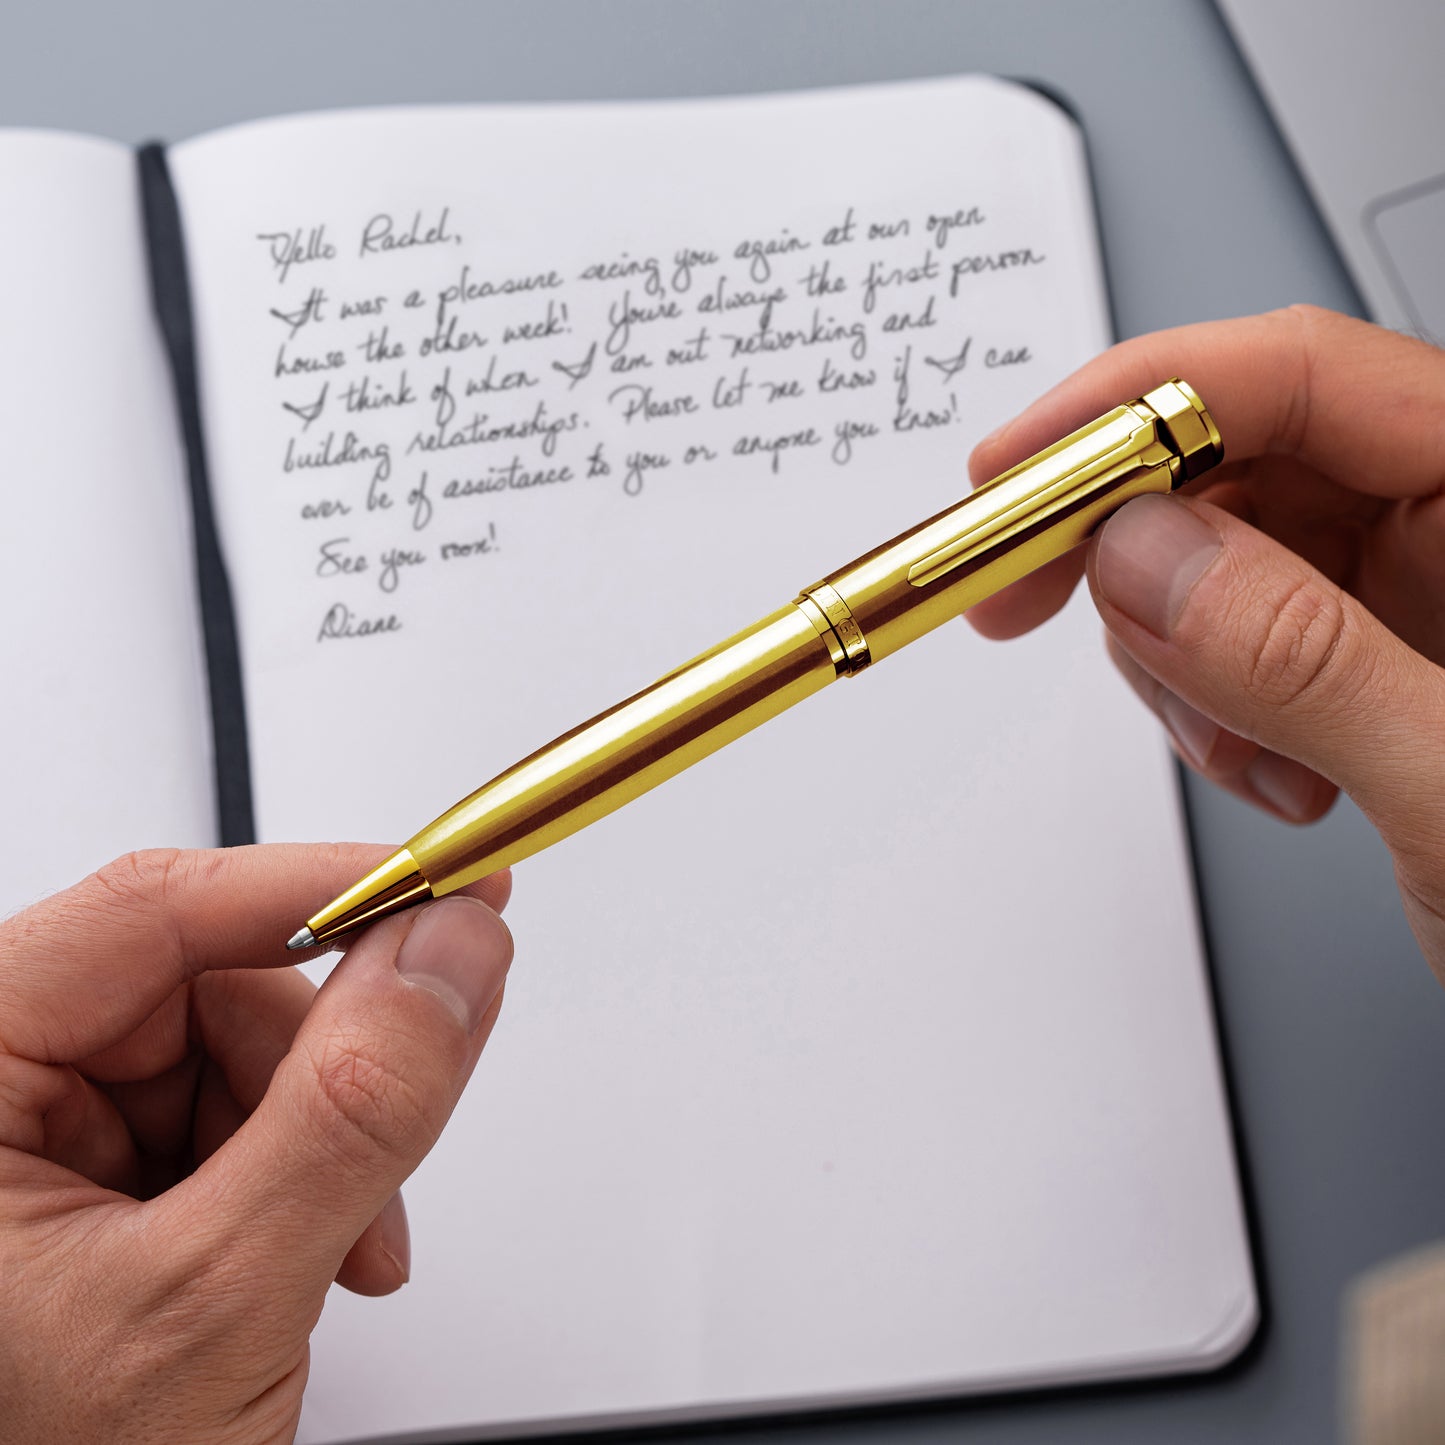 Hello Rachel,
It was a pleasure seeing you again at our open
house the other week! You're always the first person
I think of when I am out networking and
building relationships. Please let me know if I can
ever be of assistance to you or anyone you know!
See you soon!
Diane